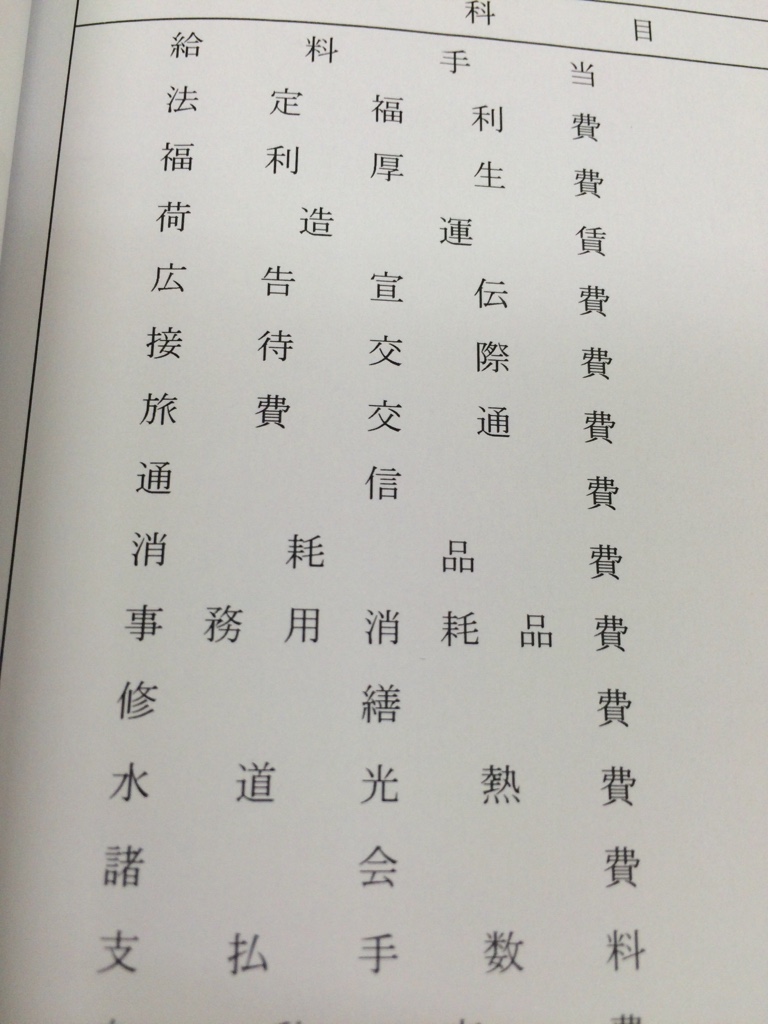 科目
給料手当
法定福利費
福利厚生費
荷造運賃
広告宣伝費
接待交際費
旅費交通費
通信費
消耗品費
事務用消耗品費
修繕費
水道光熱費
諸会費
支払手数料